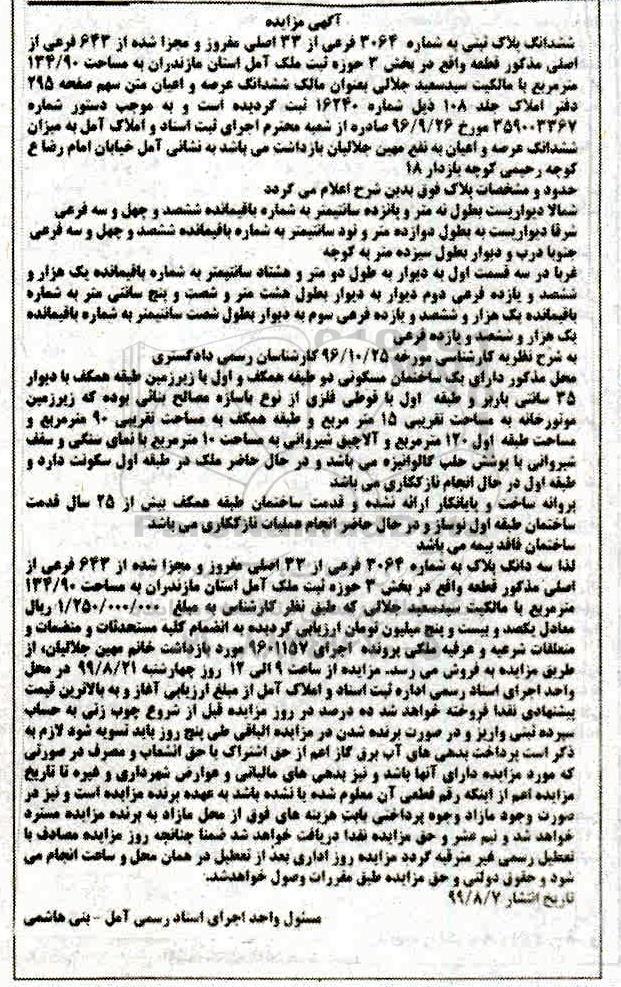 آگهی مزایده
ششدانگ پلاک ثبتی به شماره ۳۰۶۴ فرعی از ۳۳ اصلی مفروز و مجزا شده از ۶۴۳ فرعی از
اصلی مذکور قطعه واقع در بخش ۳ حوزه ثبت ملک آمل استان مازندران به مساحت ۱۳۴/۹۰
مترمربع با مالکیت سیدسعید جلالی بعنوان مالک ششدانگ عرصه و اعیان متن سهم صفحه ۲۹۵
دفتر املاک جلد ۱۰۸ ذیل شماره ۱۶۲۴۰ ثبت گردیده است و به موجب دستور شماره
۳۵۹۰۰۳۳۶۷ مورخ ۹۶/۹/۲۶ صادره از شعبه محترم اجرای ثبت اسناد و املاک آمل به میزان
ششدانگ عرصه و اعیان به نفع مهین جلالیان بازداشت می باشد به نشانی آمل خیابان امام رضا ع
کوچه رحیمی کوچه بازدار ۱۸
حدود و مشخصات پلاک فوق بدین شرح اعلام می گردد
شمالا دیواریست بطول نه متر و پانزده سانتیمتر به شماره باقیمانده ششصد و چهل و سه فرعی
شرقا دیواریست به بطول دوازده متر و نود سانتیمتر به شماره باقیمانده ششصد و چهل و سه فرعی
جنوبا درب و دیوار بطول سیزده متر به کوچه
غربا در سه قسمت اول به دیوار به طول دو متر و هشتاد سانتیمتر به شماره باقیمانده یک هزار و
ششصد و یازده فرعی دوم دیوار به دیوار بطول هشت متر و شصت و پنج سانتی متر به شماره
باقیمانده یک هزار و ششصد و یازده فرعی سوم به دیوار بطول شصت سانتیمتر به شماره باقیمانده
یک هزار و ششصد و یازده فرعی
به شرح نظریه کارشناسی مورخه ۹۶/۱۰/۲۵ کارشناسان رسمی دادگستری
محل مذکور دارای یک ساختمان مسکونی دو طبقه همکف و اول با زیرزمین طبقه همکف با دیوار
۳۵ سانتی باربر و طبقه اول با قوطی فلزی از نوع باسازه مصالح بنائی بوده که زیرزمین
موتورخانه به مساحت تقریبی ۱۵ متر مربع و طبقه همکف به مساحت تقریبی ۹۰ مترمربع و
مساحت طبقه اول ۱۲۰ مترمربع و آلاچیق شیروانی به مساحت ۱۰ مترمربع با نمای سنگی و سقف
شیروانی با پوشش حلب گالوانیزه می باشد و در حال حاضر ملک در طبقه اول سکونت دارد و
طبقه اول در حال انجام نازککاری می باشد
پروانه ساخت و پایانکار ارائه نشده و قدمت ساختمان طبقه همکف بیش از ۲۵ سال قدمت
ساختمان طبقه اول نوساز و در حال حاضر انجام عملیات نازککاری می باشد
ساختمان فاقد بیمه می باشد
لذا سه دانگ پلاک به شماره ۳۰۶۴ فرعی از ۳۳ اصلی مفروز و مجزا شده از ۶۴۳ فرعی از
اصلی مذکور قطعه واقع در بخش ۳ حوزه ثبت ملک آمل استان مازندران به مساحت ۱۳۴/۹۰
مترمربع با مالکیت سیدسعید جلالی که طبق نظر کارشناس به مبلغ ۱/۲۵۰/۰۰۰/۰۰۰ ریال
معادل یکصد و بیست و پنج میلیون تومان ارزیابی گردیده به انضمام کلیه مستحدثات و منضمات و
متعلقات شرعیه و عرفیه ملکی پرونده اجرای ۹۶۰۱۱۵۷ مورد بازداشت خانم مهین جلالیان، از
طریق مزایده به فروش می رسد. مزایده از ساعت ۹ الی ۱۲ روز چهارشنبه ۹۹/۸/۲۱ در محل
واحد اجرای اسناد رسمی اداره ثبت اسناد و املاک آمل از مبلغ ارزیابی آغاز و به بالاترین قیمت
پیشنهادی نقدا فروخته خواهد شد ده درصد در روز مزایده قبل از شروع چوب زنی به حساب
سپرده ثبتی واریز و در صورت برنده شدن در مزایده الباقی طی پنج روز باید تسویه شود لازم به
ذکر است پرداخت بدهی های آب برق گاز اعم از حق اشتراک یا حق انشعاب و مصرف در صورتی
که مورد مزایده دارای آنها باشد و نیز بدهی های مالیاتی و عوارض شهرداری و غیره تا تاریخ
مزایده اعم از اینکه رقم قطعی آن معلوم شده یا نشده باشد به عهده برنده مزایده است و نیز در
صورت وجود مازاد وجوه پرداختی بابت هزینه های فوق از محل مازاد به برنده مزایده مسترد
خواهد شد و نیم عشر و حق مزایده نقدا دریافت خواهد شد ضمنا چنانچه روز مزایده مصادف با
تعطیل رسمی غیر مترقبه گردد مزایده روز اداری بعد از تعطیل در همان محل و ساعت انجام می
شود و حقوق دولتی و حق مزایده طبق مقررات وصول خواهدشد.
تاریخ انتشار ۹۹/۸/۷
مسئول واحد اجرای اسناد رسمی آمل - بنی هاشمی